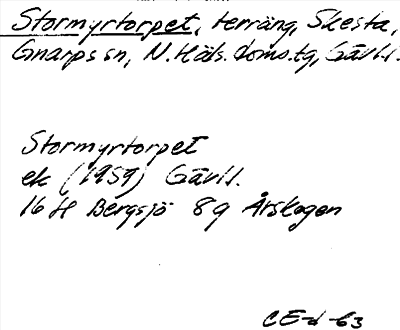 Stormyrtorpet, terräng, Skesta,
Gnarps sn, N. Häls. doms.tg, Gävl.l.
Stormyrtorpet
ek (1959) Gävl.l.
16 H Bergsjö 8g Årskogen
CE-d -63